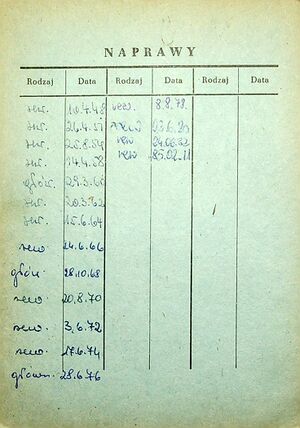 NAPRAWY
Rodzaj Data Rodzaj Data Rodzaj Data
śr. 10.4.48 rew. 8.8.78
śr. 26.4.51
śr. 25.8.54 rew
śr. 14.4.58 rew 85.02.11
główn. 29.3.60
śr. 20.3.62
śr. 15.6.64
rew 24.6.66
główn 28.10.68
rew 20.8.70
rew 3.6.72
rew 17.6.74
główn. 28.6.76